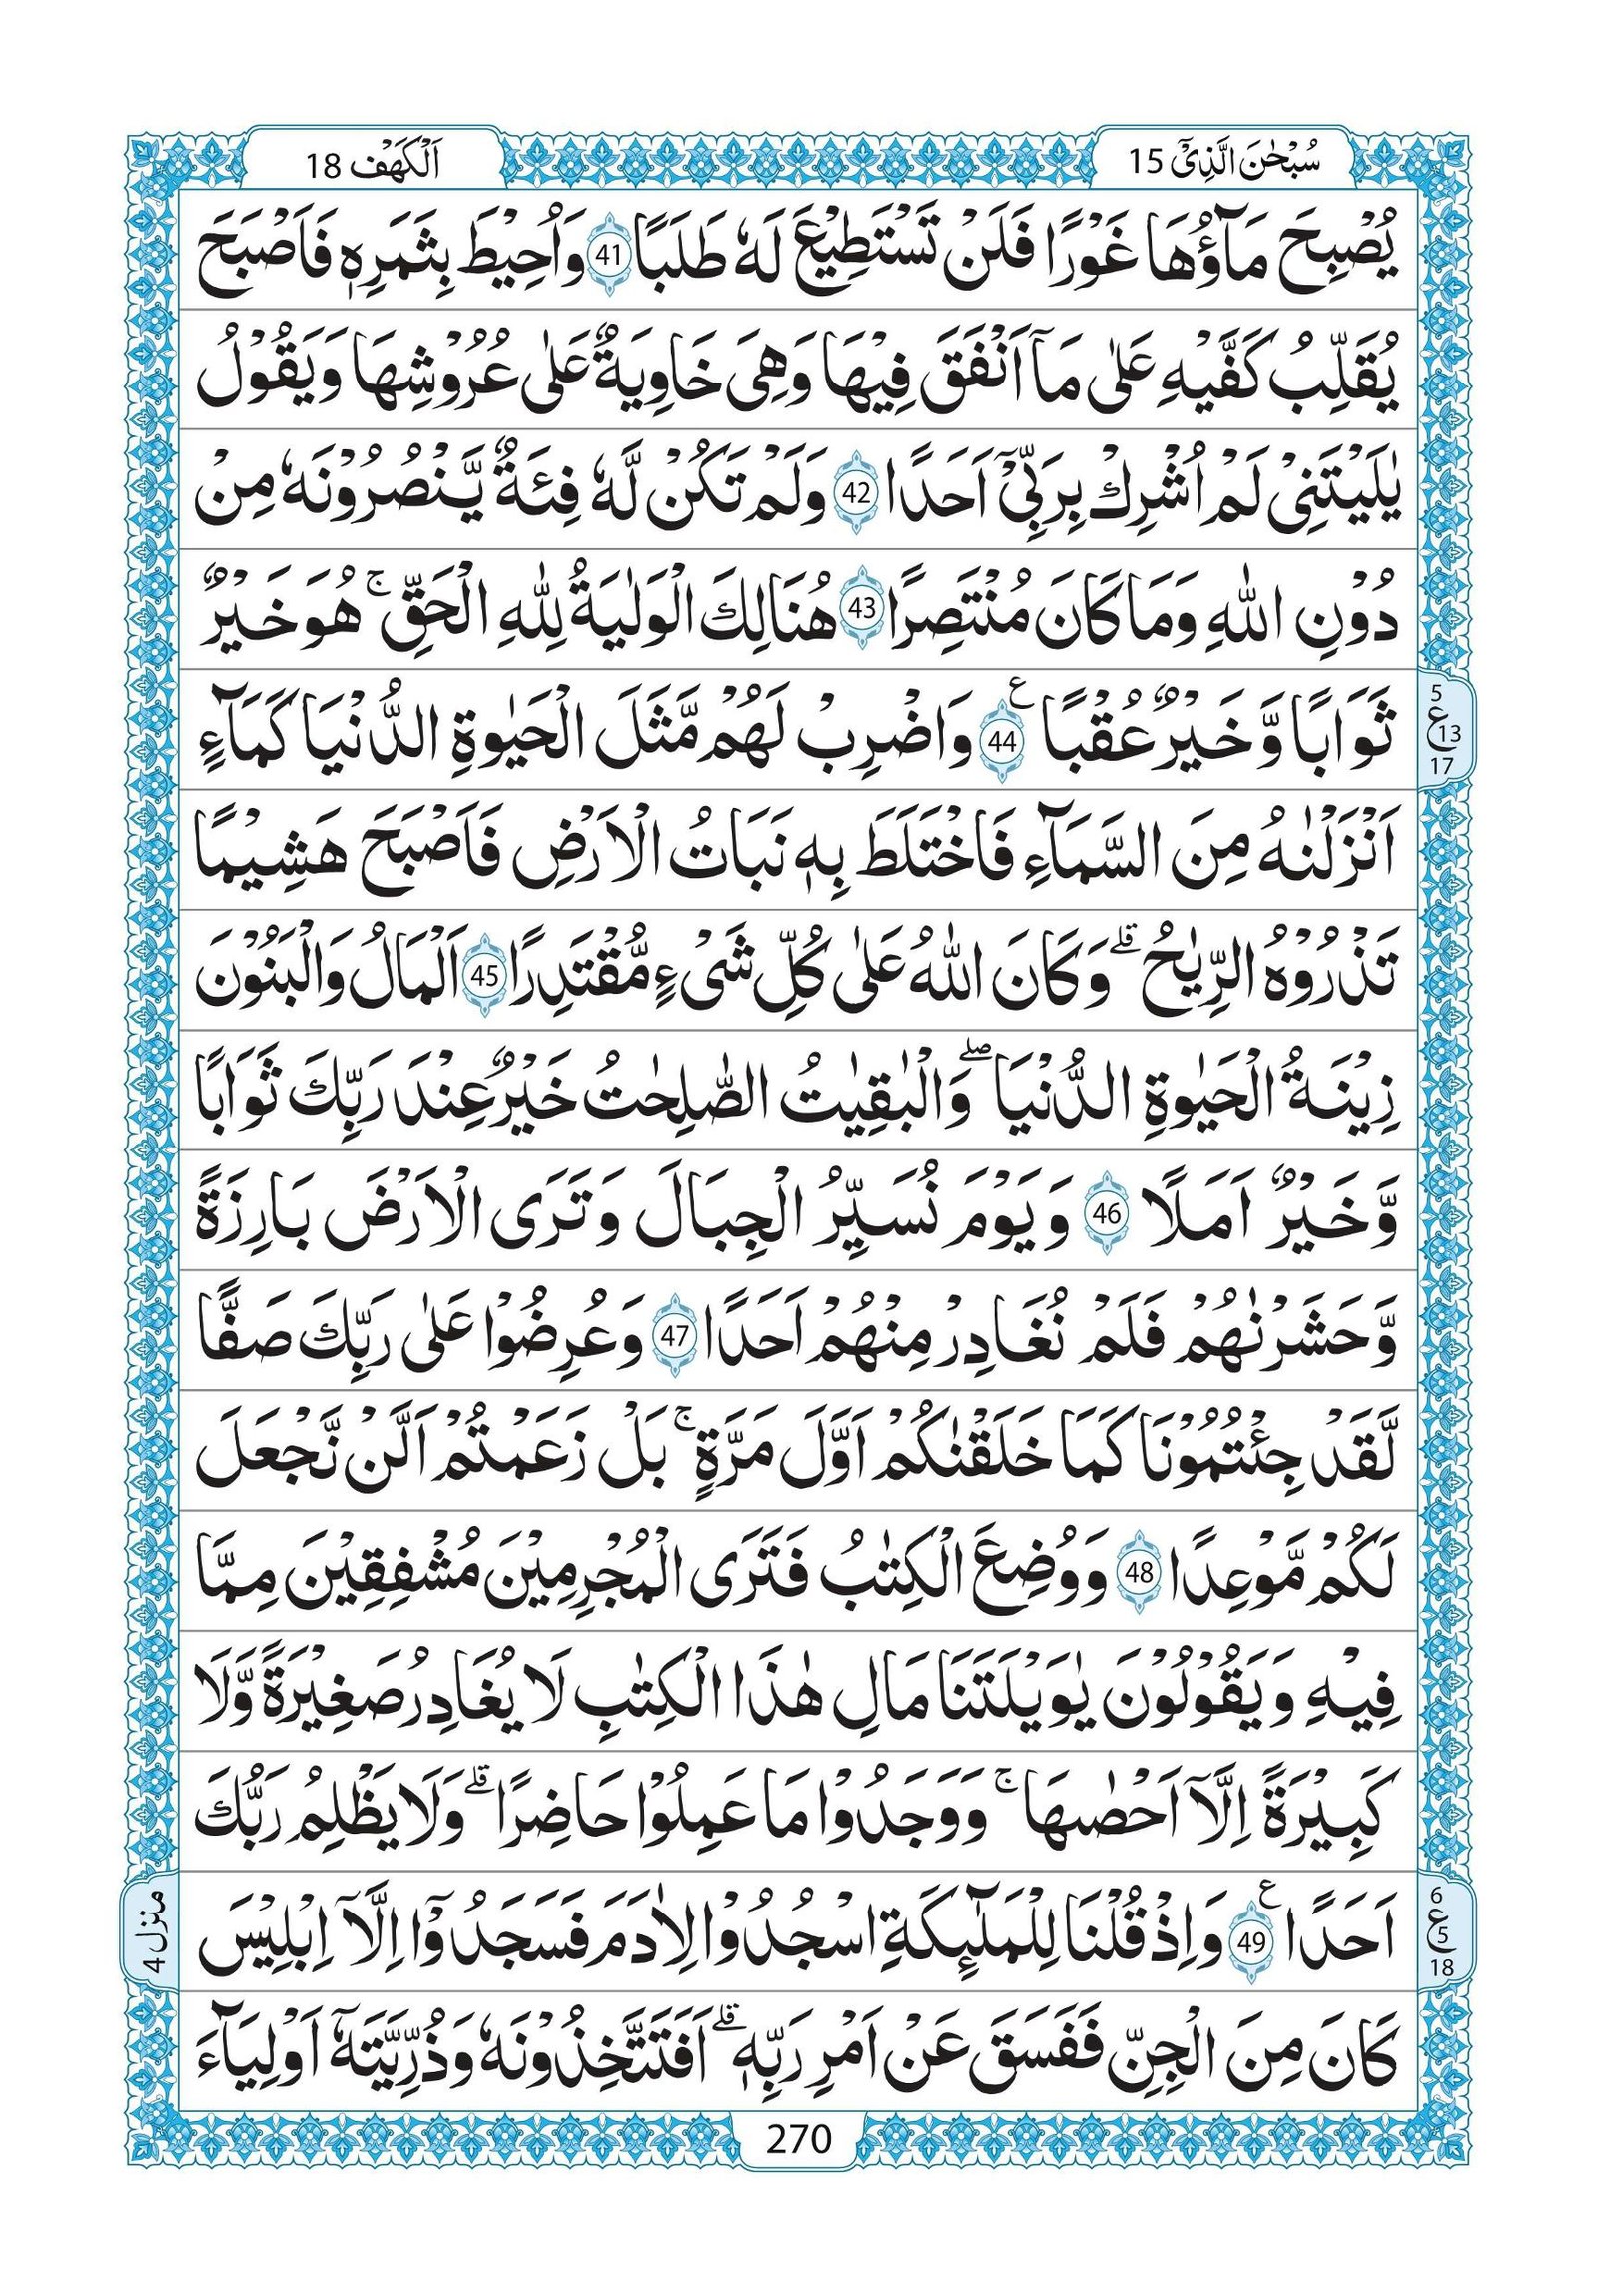 سُبْحٰنَ الَّذِیْۤ 15
اَلْكَهْف 18
یُصْبِحَ مَآؤُهَا غَوْرًا فَلَنْ تَسْتَطِیْعَ لَهٗ طَلَبًا 41 وَاُحِیْطَ بِثَمَرِهٖ فَاَصْبَحَ
یُقَلِّبُ كَفَّیْهِ عَلٰی مَاۤ اَنْفَقَ فِیْهَا وَهِیَ خَاوِیَةٌ عَلٰی عُرُوْشِهَا وَیَقُوْلُ
یٰلَیْتَنِیْ لَمْ اُشْرِكْ بِرَبِّیْۤ اَحَدًا 42 وَلَمْ تَكُنْ لَّهٗ فِئَةٌ یَّنْصُرُوْنَهٗ مِنْ
دُوْنِ اللّٰهِ وَمَا كَانَ مُنْتَصِرًا 43 هُنَالِكَ الْوَلَایَةُ لِلّٰهِ الْحَقِّ ۚ هُوَ خَیْرٌ
ثَوَابًا وَّخَیْرٌ عُقْبًا ع 44 وَاضْرِبْ لَهُمْ مَّثَلَ الْحَیٰوةِ الدُّنْیَا كَمَآءٍ
5
ع 13
17
اَنْزَلْنٰهُ مِنَ السَّمَآءِ فَاخْتَلَطَ بِهٖ نَبَاتُ الْاَرْضِ فَاَصْبَحَ هَشِیْمًا
تَذْرُوْهُ الرِّیٰحُ ۗ وَكَانَ اللّٰهُ عَلٰی كُلِّ شَیْءٍ مُّقْتَدِرًا 45 اَلْمَالُ وَالْبَنُوْنَ
زِیْنَةُ الْحَیٰوةِ الدُّنْیَا ۖ وَالْبٰقِیٰتُ الصّٰلِحٰتُ خَیْرٌ عِنْدَ رَبِّكَ ثَوَابًا
وَّخَیْرٌ اَمَلًا 46 وَیَوْمَ نُسَیِّرُ الْجِبَالَ وَتَرَی الْاَرْضَ بَارِزَةً
وَّحَشَرْنٰهُمْ فَلَمْ نُغَادِرْ مِنْهُمْ اَحَدًا 47 وَعُرِضُوْا عَلٰی رَبِّكَ صَفًّا
لَّقَدْ جِئْتُمُوْنَا كَمَا خَلَقْنٰكُمْ اَوَّلَ مَرَّةٍ ۚ بَلْ زَعَمْتُمْ اَلَّنْ نَّجْعَلَ
لَكُمْ مَّوْعِدًا 48 وَوُضِعَ الْكِتٰبُ فَتَرَی الْمُجْرِمِیْنَ مُشْفِقِیْنَ مِمَّا
فِیْهِ وَیَقُوْلُوْنَ یٰوَیْلَتَنَا مَالِ هٰذَا الْكِتٰبِ لَا یُغَادِرُ صَغِیْرَةً وَّلَا
كَبِیْرَةً اِلَّاۤ اَحْصٰىهَا ۚ وَوَجَدُوْا مَا عَمِلُوْا حَاضِرًا ۗ وَلَا یَظْلِمُ رَبُّكَ
اَحَدًا ع 49 وَاِذْ قُلْنَا لِلْمَلٰٓئِكَةِ اسْجُدُوْا لِاٰدَمَ فَسَجَدُوْۤا اِلَّاۤ اِبْلِیْسَ
6
ع 5
18
منزل 4
كَانَ مِنَ الْجِنِّ فَفَسَقَ عَنْ اَمْرِ رَبِّهٖ ۗ اَفَتَتَّخِذُوْنَهٗ وَذُرِّیَّتَهٗۤ اَوْلِیَآءَ
270